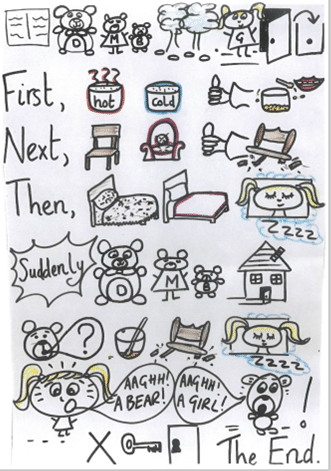 D M B G
First, hot cold
Next,
Then,
ZZZZ
Suddenly D M B
?
ZZZZ
AAGHH!
A BEAR!
AAGHH!
A GIRL!
!
X The End.